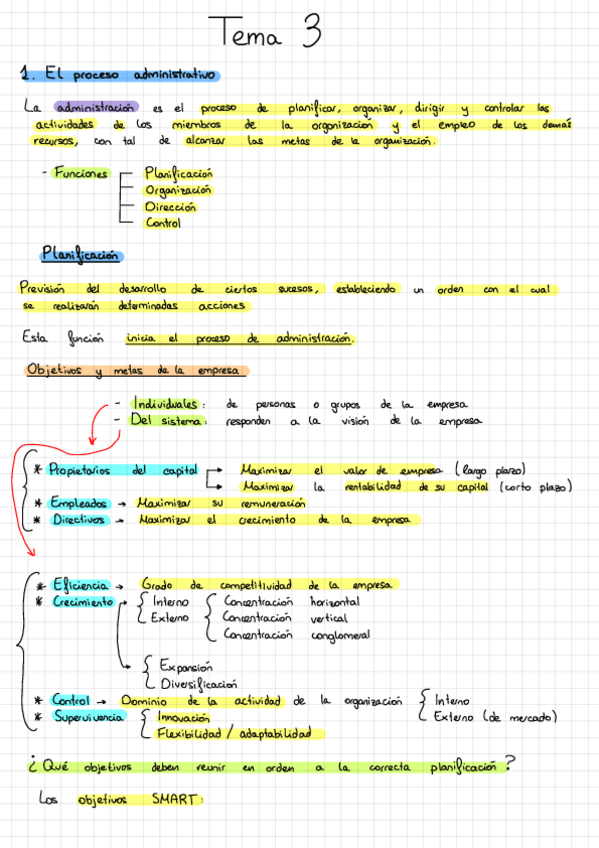 Tema 3
1. El proceso administrativo
La administración es el proceso de planificar, organizar, dirigir y controlar las
actividades de los miembros de la organización y el empleo de los demás
recursos, con tal de alcanzar las metas de la organización.
- Funciones Planificación
Organización
Dirección
Control
Planificación
Previsión del desarrollo de ciertos sucesos, estableciendo un orden con el cual
se realizarán determinadas acciones
Esta función inicia el proceso de administración.
Objetivos y metas de la empresa
- Individuales: de personas o grupos de la empresa
- Del sistema: responden a la visión de la empresa
* Propietarios del capital → Maximizar el valor de empresa (largo plazo)
→ Maximizar la rentabilidad de su capital (corto plazo)
* Empleados → Maximizar su remuneración
* Directivos → Maximizar el crecimiento de la empresa
* Eficiencia → Grado de competitividad de la empresa
* Crecimiento → { Interno { Concentración horizontal
Externo Concentración vertical
Concentración conglomeral
{ Expansión
Diversificación
* Control → Dominio de la actividad de la organización { Interno
* Supervivencia { Innovación Externo (de mercado)
Flexibilidad / adaptabilidad
¿Qué objetivos deben reunir en orden a la correcta planificación?
Los objetivos SMART: